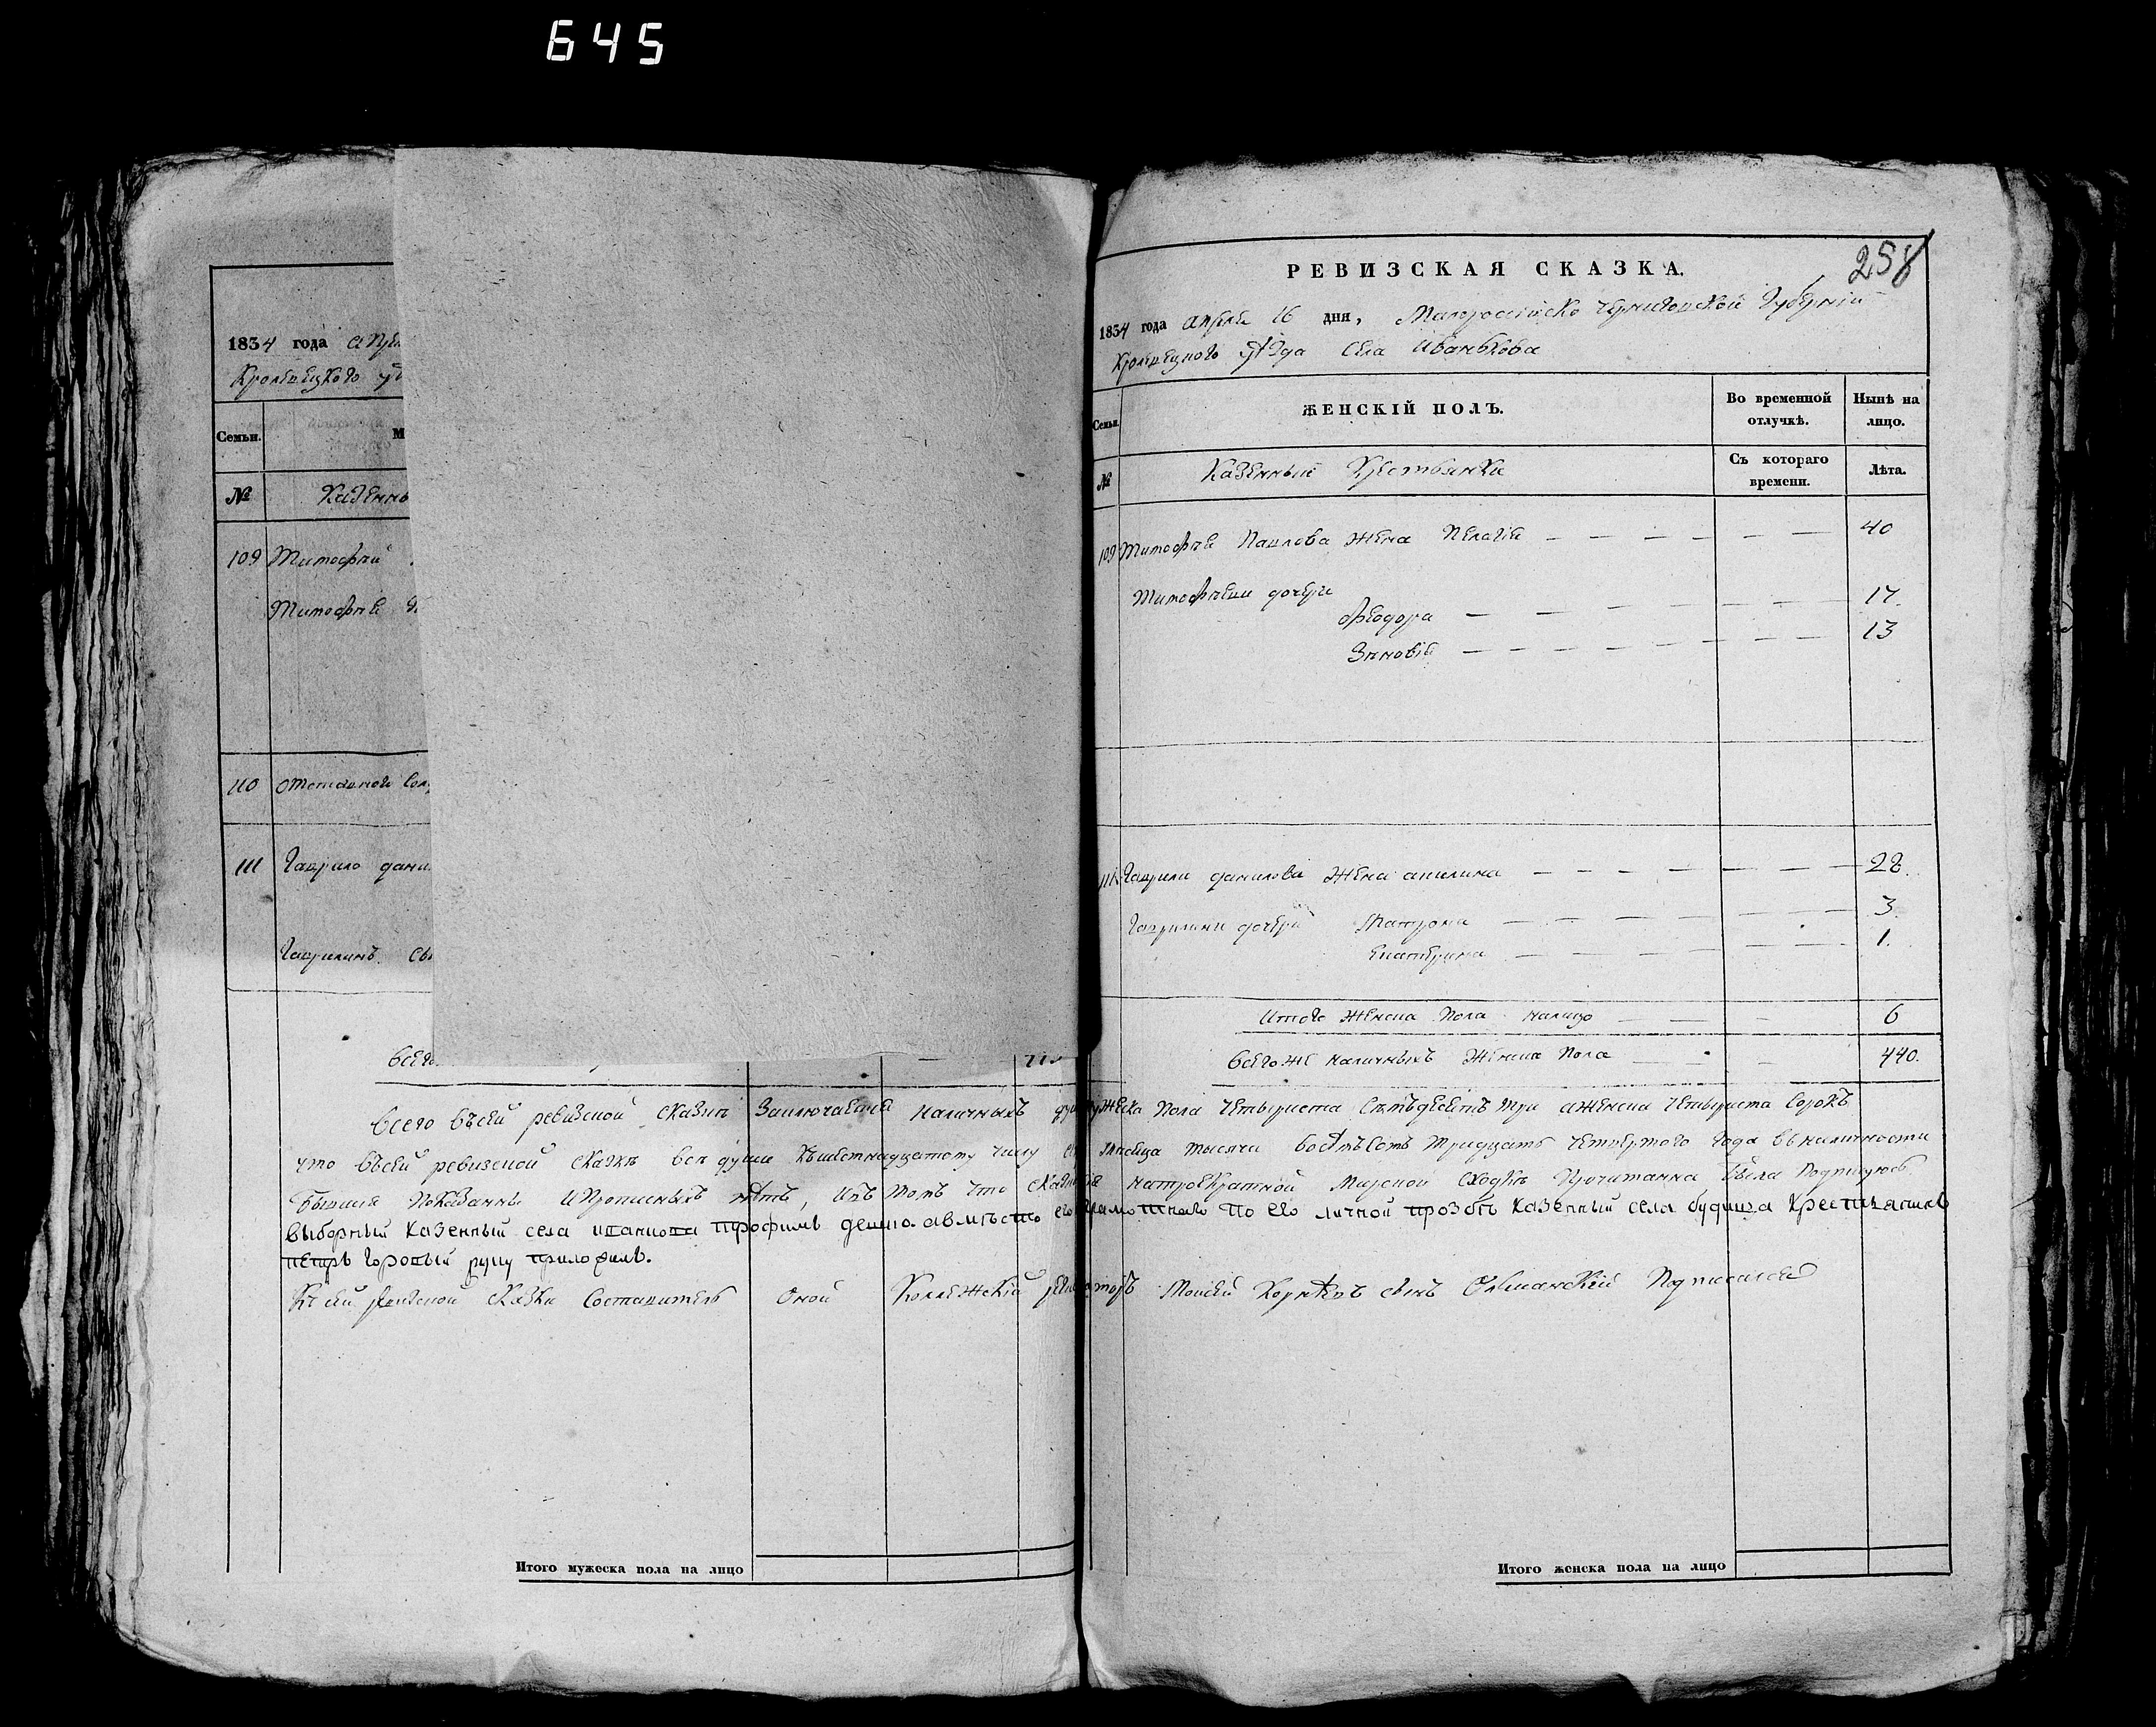 645
1834 года
Кролевецкого
Семьи.
М
№
Казенны
109 Тимофей
Тимофея
110 отставной
111 Гаврило дани
Гаврилинъ
всего
258
РЕВИЗСКАЯ СКАЗКА.
1834 года апреля 16 дня, Малоросійско Черниговской Губерніи
Кролевецкого уѣзда села Иванькова
Семьи.
ЖЕНСКІЙ ПОЛЪ.
Во временной отлучкѣ.
Нынѣ на лицо.
№
Казенныи Крестьянки
Съ котораго времени.
Лѣта.
109 Тимофея Павлова жена Пелагія — 40
Тимофеевы дочери
Феодора — 17.
Зиновія — 13
111 Гаврили данилова жена акилина — 28.
Гаврилини дочери Матрона — 3.
Екатерина — 1.
Итого женска пола налицо — 6
всего же наличныхъ женска пола — 440.
всего въсей ревизской сказки Заключается наличныхъ душъ мужеска пола четыриста семъдесятъ три аженска четыриста сорокъ
что въсей ревизской сказкѣ всѣ души къшестнадцатому числу мѣсяца тысяча восѣмъсотъ тридцать четвертого года въналичности
бывшия показанны ипрописныхъ нѣтъ, ивъ томъ что натроекратной мирской сходкѣ прочитанна была подписуюсь
выборный казенный села трофимъ авмѣсто его по его личной прозбѣ казенный села будища крестьянинъ
петръ руку приложилъ.
Къ сей ревизской сказки составитель оной Колежскій регистраторъ Моисей Корнѣевъ сынъ подписался
Итого мужеска пола на лицо
Итого женска пола на лицо